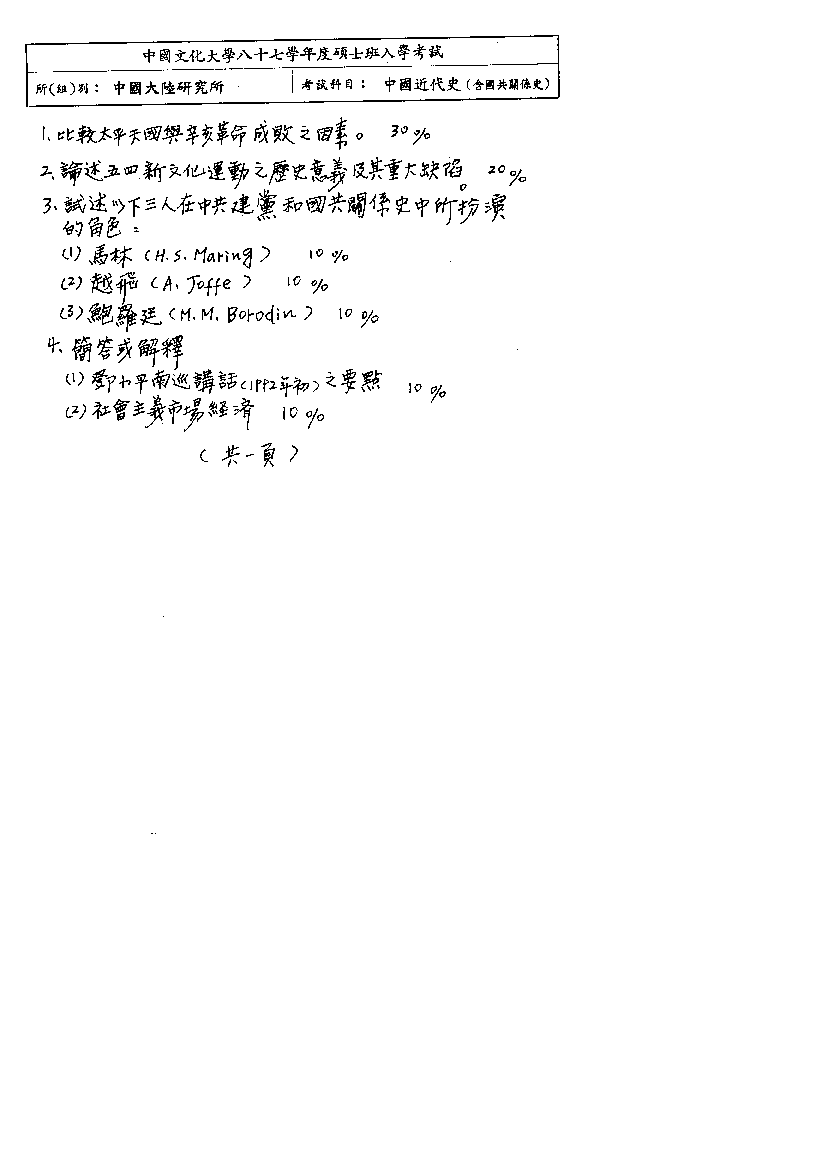 中國文化大學八十七學年度碩士班入學考試
所(組)別：中國大陸研究所 考試科目：中國近代史(含國共關係史)
1、比較太平天國與辛亥革命成敗之因素。 30%
2、論述五四新文化運動之歷史意義及其重大缺陷。 20%
3、試述以下三人在中共建黨和國共關係史中所扮演
的角色：
(1)馬林(H.S. Maring) 10%
(2)越飛(A. Joffe) 10%
(3)鮑羅廷(M.M. Borodin) 10%
4、簡答或解釋
(1)鄧小平南巡講話(1992年初)之要點 10%
(2)社會主義市場經濟 10%
(共一頁)